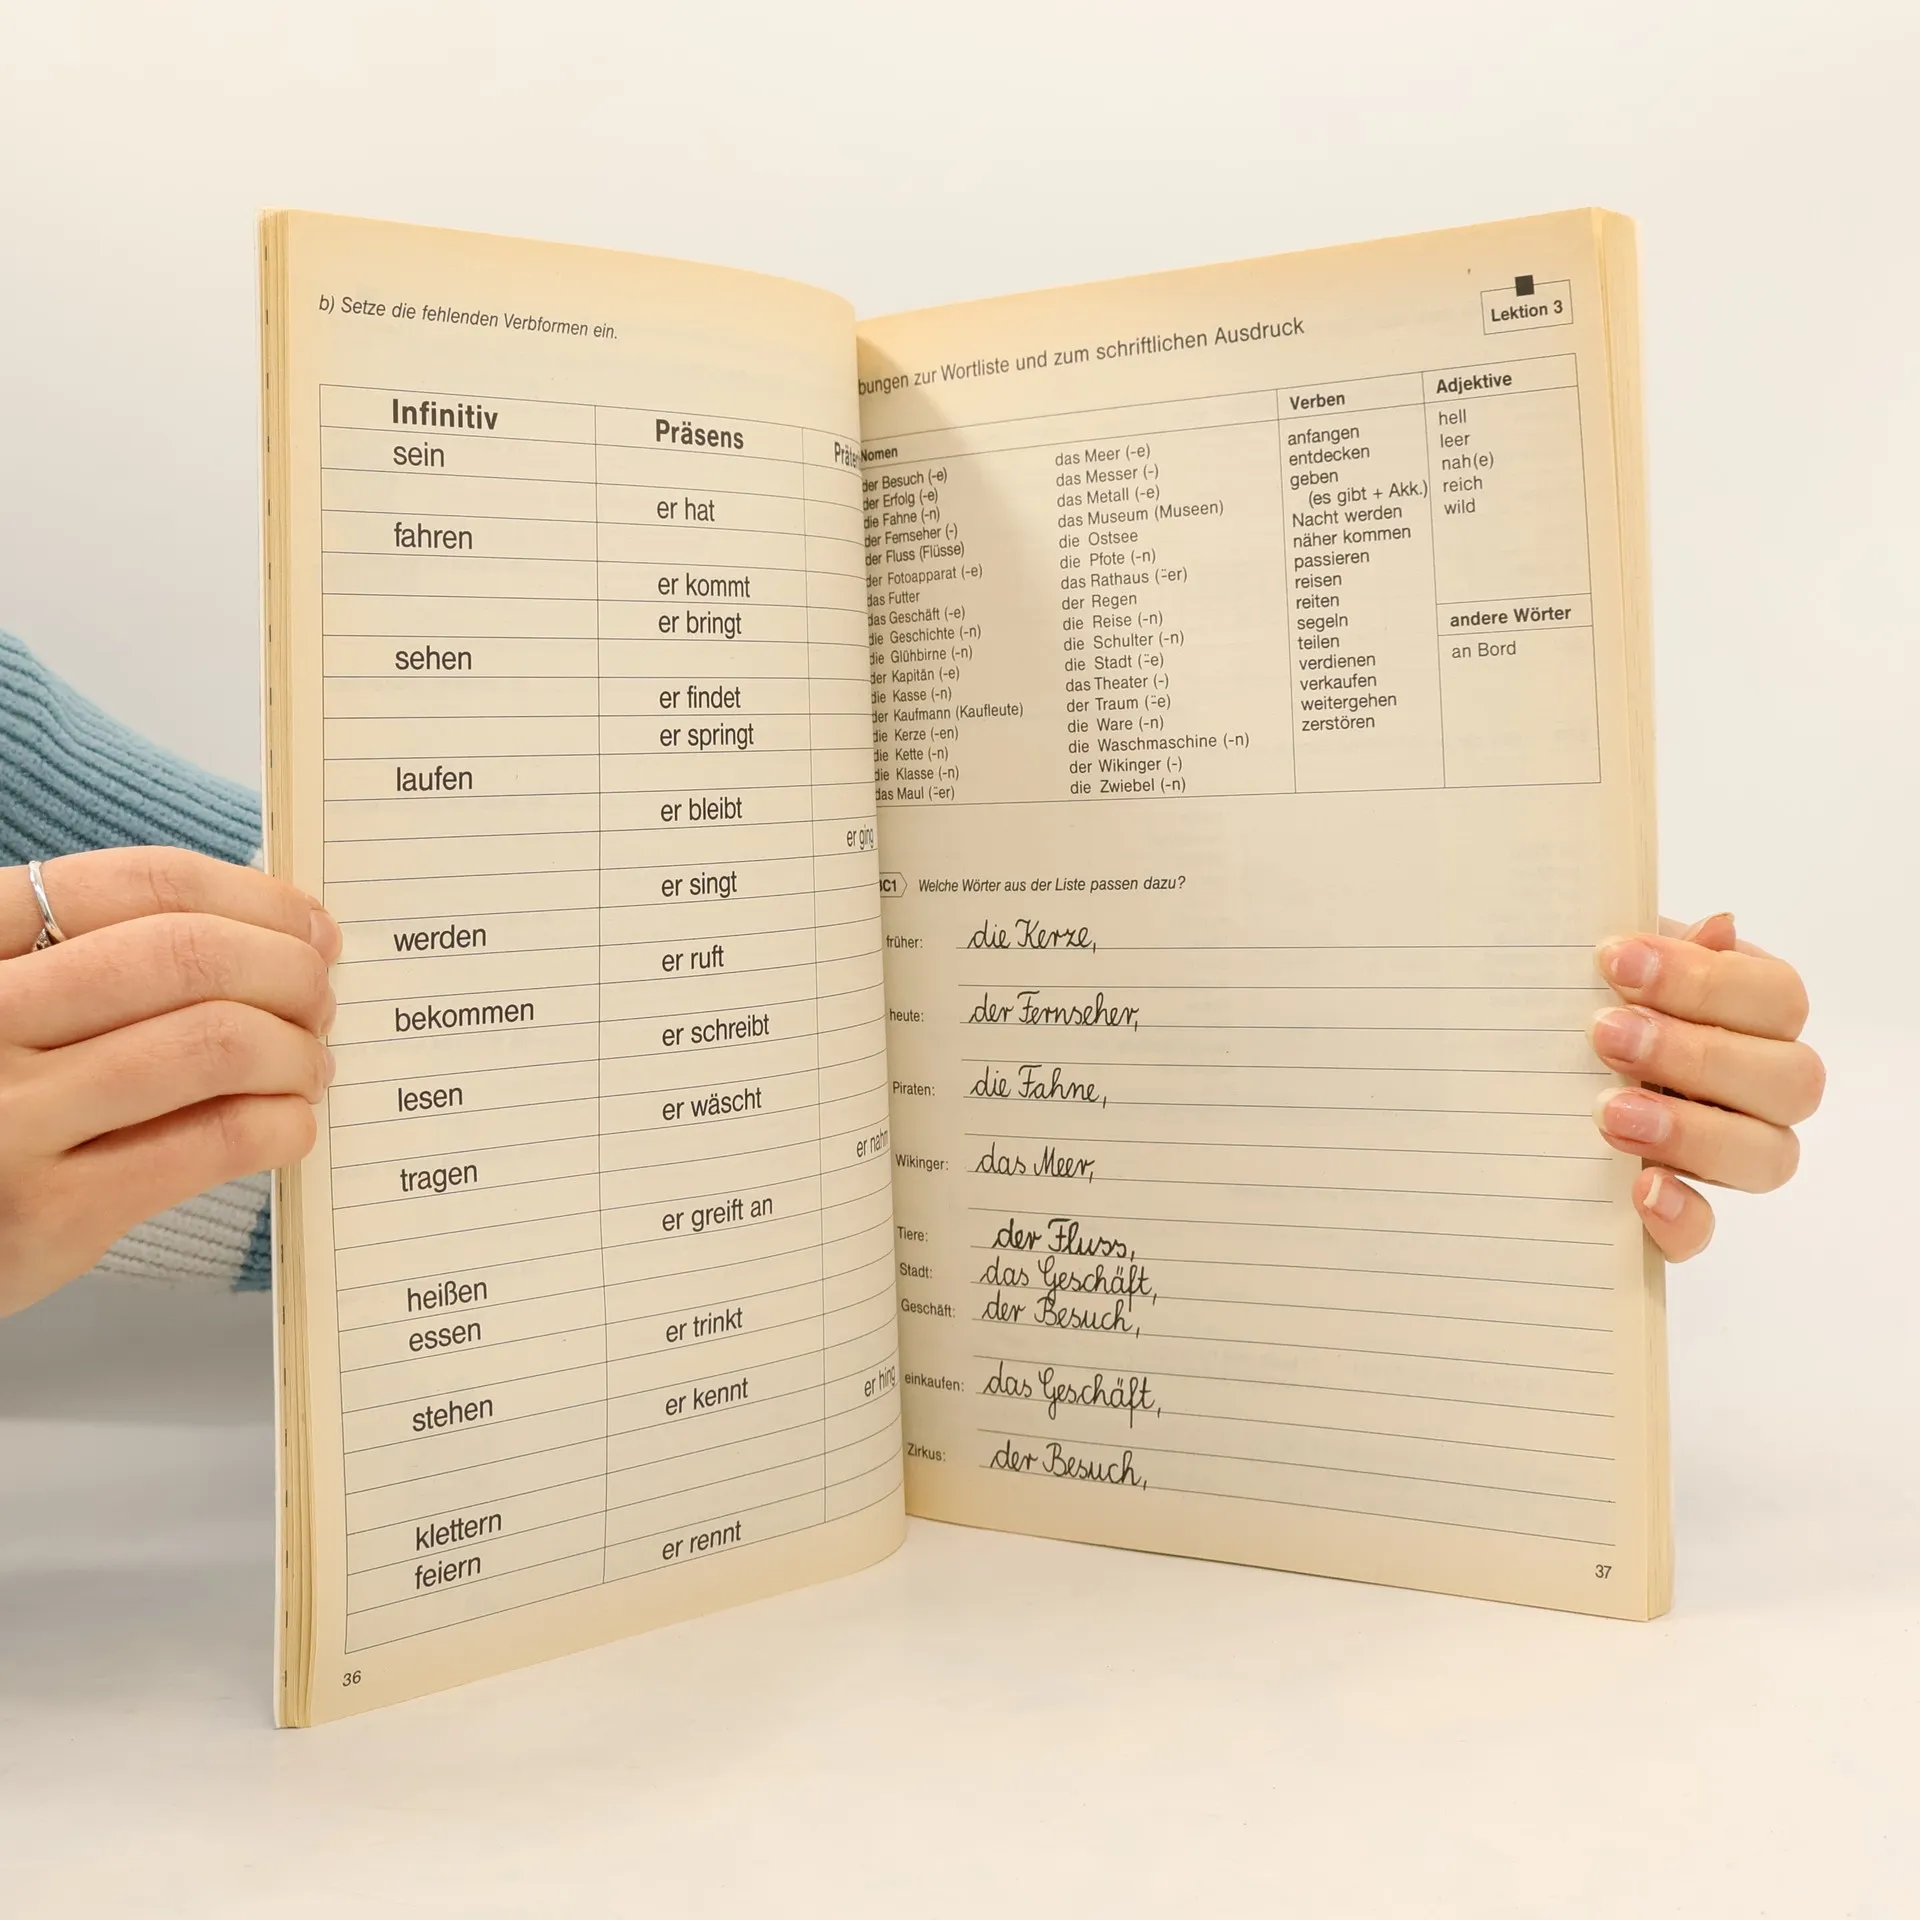 b) Setze die fehlenden Verbformen ein.
Infinitiv Präsens
sein
er hat
fahren
er kommt
er bringt
sehen
er findet
er springt
laufen
er bleibt
er ging
er singt
werden
er ruft
bekommen
er schreibt
lesen
er wäscht
er nahm
tragen
er greift an
heißen
essen
er trinkt
er hing
stehen
er kennt
klettern
er rennt
feiern
36
Lektion 3
bungen zur Wortliste und zum schriftlichen Ausdruck
Nomen
der Besuch (-e)
der Erfolg (-e)
die Fahne (-n)
der Fernseher (-)
der Fluss (Flüsse)
der Fotoapparat (-e)
das Futter
das Geschäft (-e)
die Geschichte (-n)
die Glühbirne (-n)
der Kapitän (-e)
die Kasse (-n)
der Kaufmann (Kaufleute)
die Kerze (-en)
die Kette (-n)
die Klasse (-n)
das Maul (¨-er)
das Meer (-e)
das Messer (-)
das Metall (-e)
das Museum (Museen)
die Ostsee
die Pfote (-n)
das Rathaus (¨-er)
der Regen
die Reise (-n)
die Schulter (-n)
die Stadt (¨-e)
das Theater (-)
der Traum (¨-e)
die Ware (-n)
die Waschmaschine (-n)
der Wikinger (-)
die Zwiebel (-n)
Verben
anfangen
entdecken
geben
(es gibt + Akk.)
Nacht werden
näher kommen
passieren
reisen
reiten
segeln
teilen
verdienen
verkaufen
weitergehen
zerstören
Adjektive
hell
leer
nah(e)
reich
wild
andere Wörter
an Bord
C1 Welche Wörter aus der Liste passen dazu?
früher: die Kerze,
heute: der Fernseher,
Piraten: die Fahne,
Wikinger: das Meer,
Tiere: der Fluss,
Stadt: das Geschäft,
Geschäft: der Besuch,
einkaufen: das Geschäft,
Zirkus: der Besuch,
37